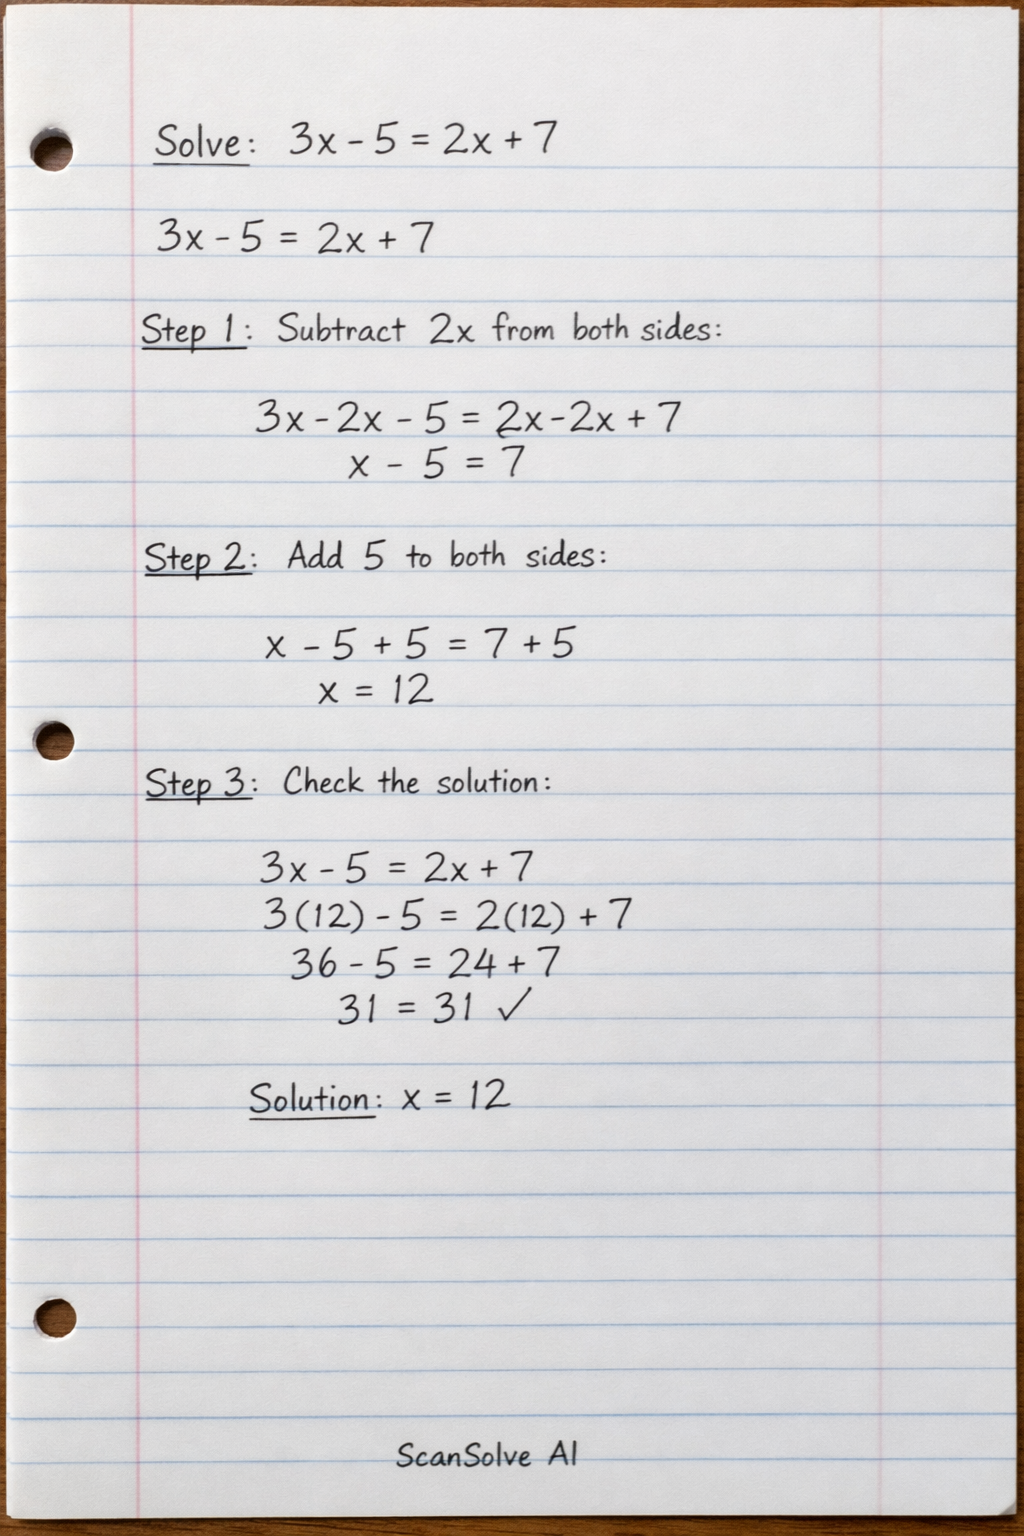 Solve: 3x - 5 = 2x + 7
3x - 5 = 2x + 7
Step 1: Subtract 2x from both sides:
3x - 2x - 5 = 2x - 2x + 7
x - 5 = 7
Step 2: Add 5 to both sides:
x - 5 + 5 = 7 + 5
x = 12
Step 3: Check the solution:
3x - 5 = 2x + 7
3(12) - 5 = 2(12) + 7
36 - 5 = 24 + 7
31 = 31 ✓
Solution: x = 12
ScanSolve AI